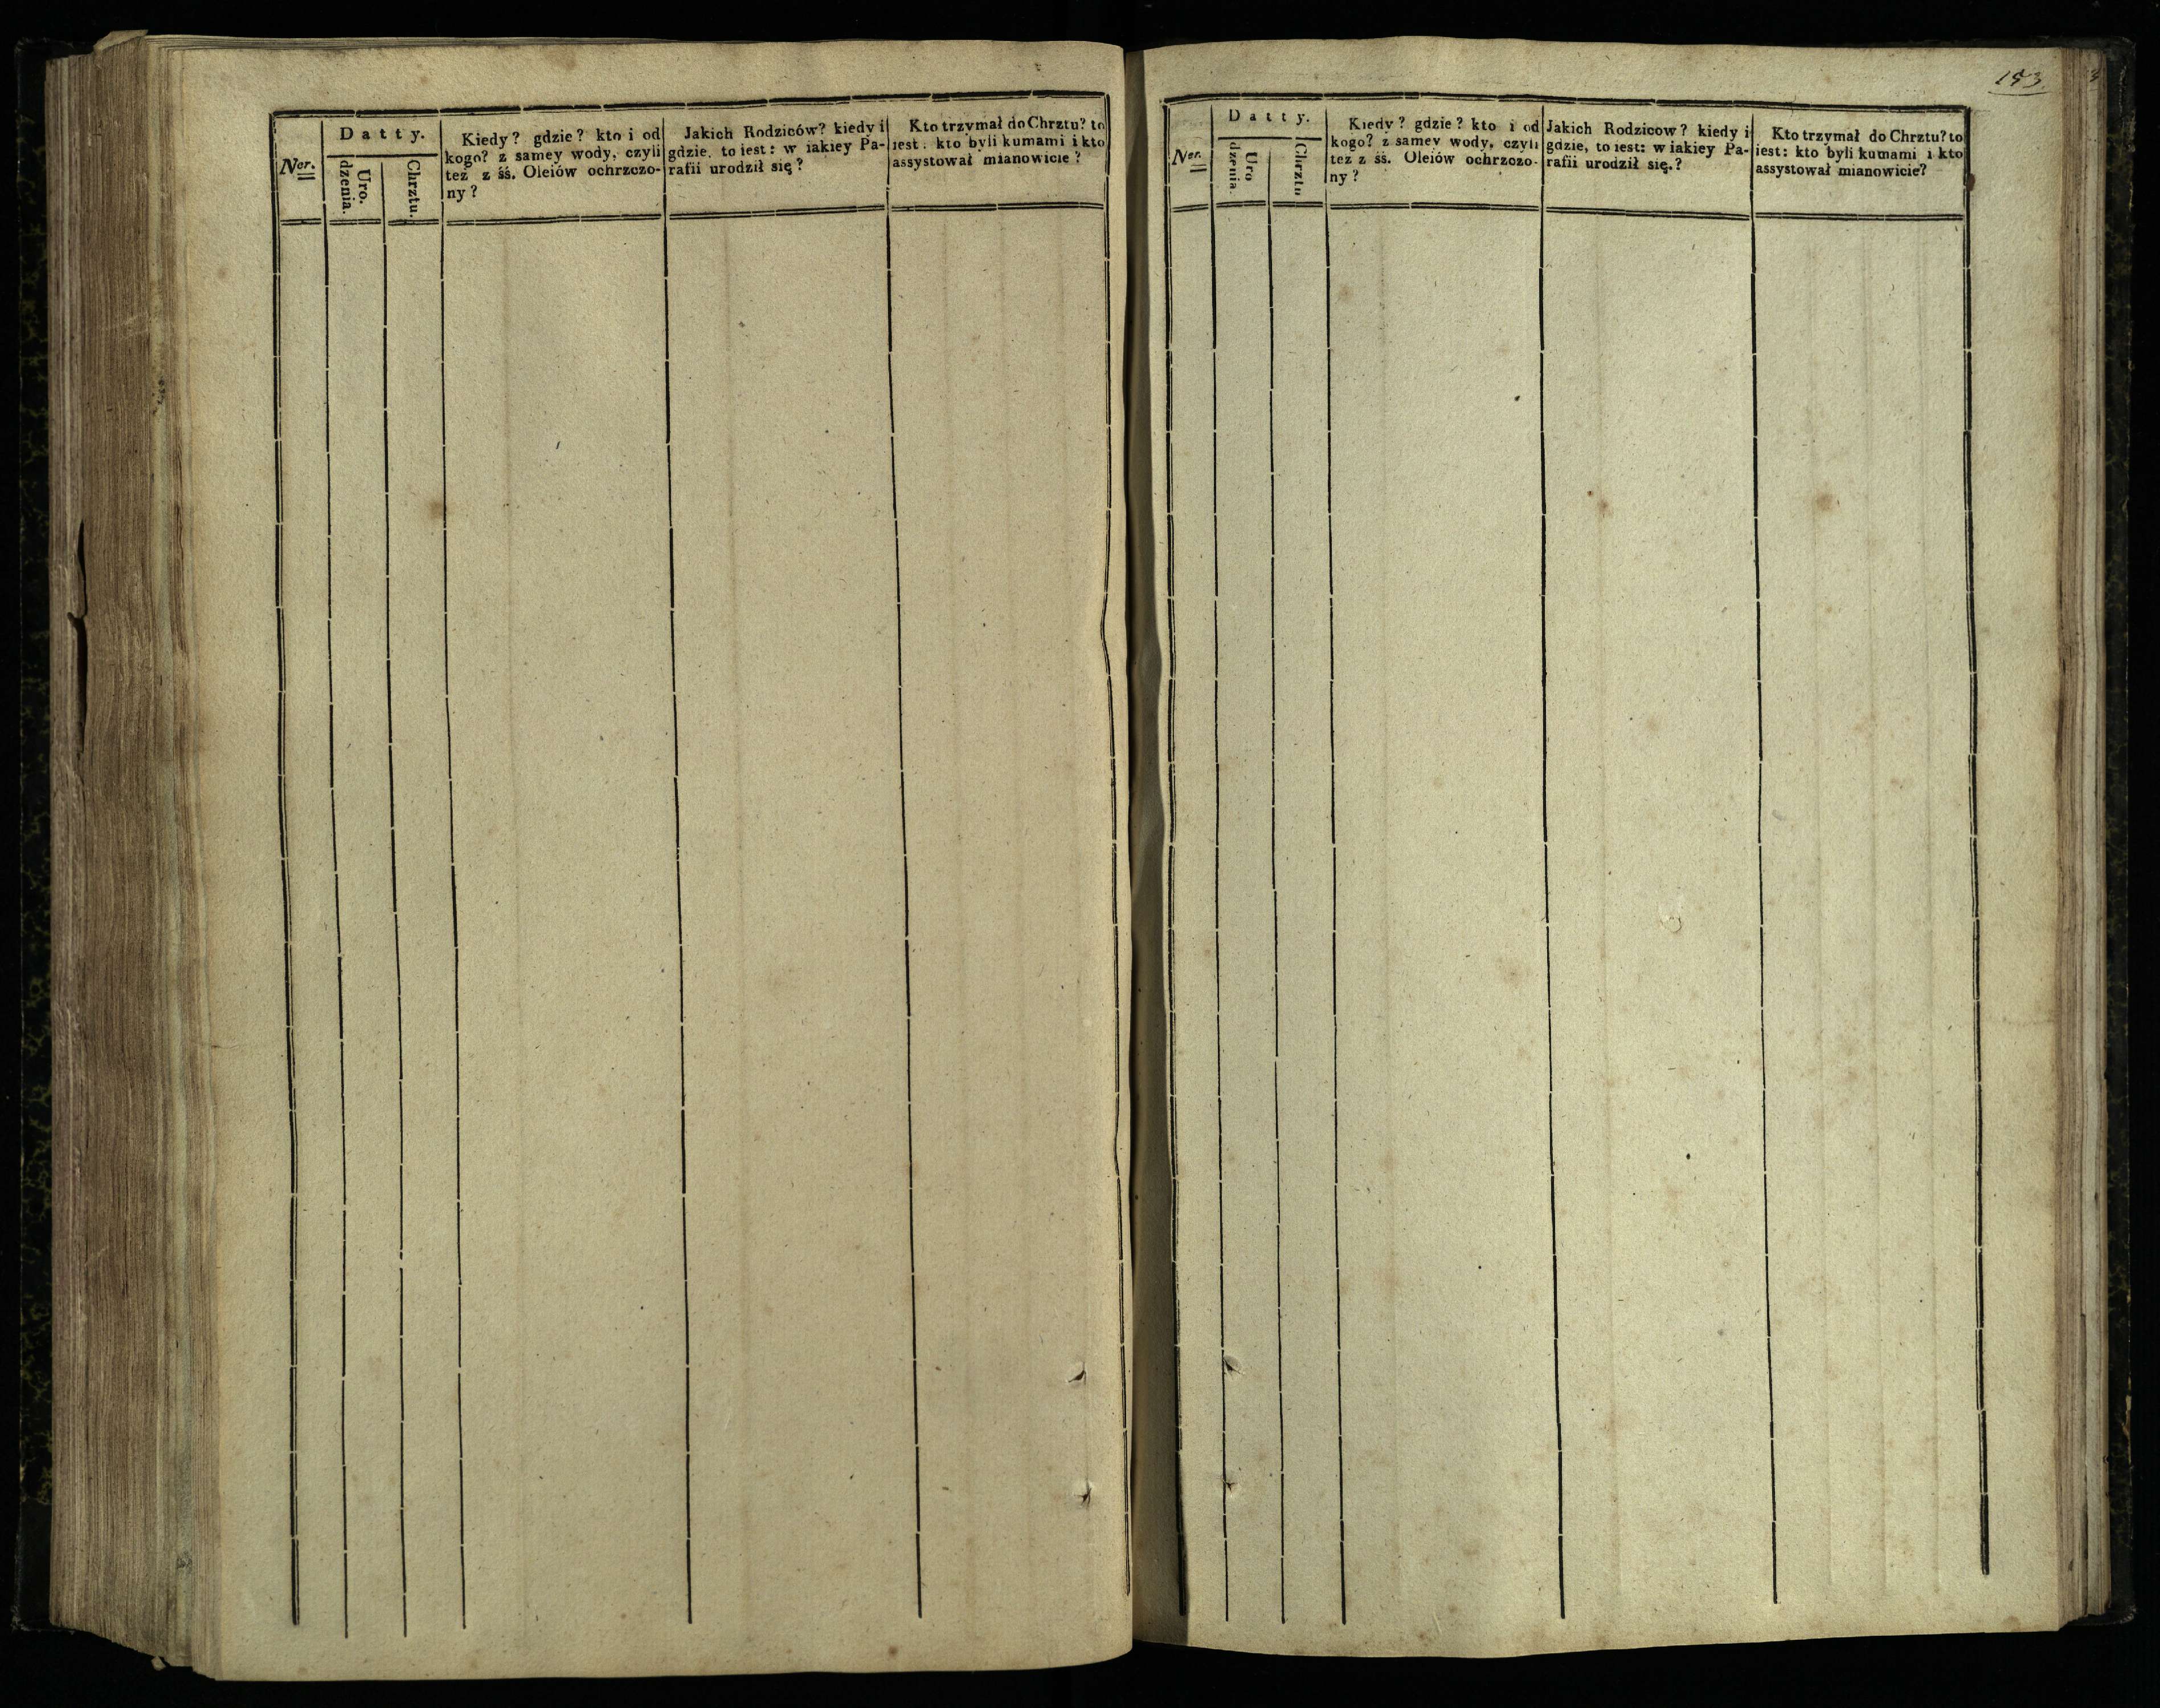 Ner.
Datty.
Uro.
dzenia.
Chrztu.
Kiedy? gdzie? kto i od
kogo? z samey wody, czyli
też z śś. Oleiów ochrzczo-
ny?
Jakich Rodziców? kiedy i
gdzie, to iest: w iakiey Pa-
rafii urodził się?
Kto trzymał do Chrztu? to
iest: kto byli kumami i kto
assystował mianowicie?
153.
Ner.
Datty.
Uro
dzenia
Chrztu
Kiedy? gdzie? kto i od
kogo? z samey wody, czyli
też z śś. Oleiów ochrzczo-
ny?
Jakich Rodzicow? kiedy i
gdzie, to iest: w iakiey Pa-
rafii urodził się.?
Kto trzymał do Chrztu? to
iest: kto byli kumami i kto
assystował mianowicie?